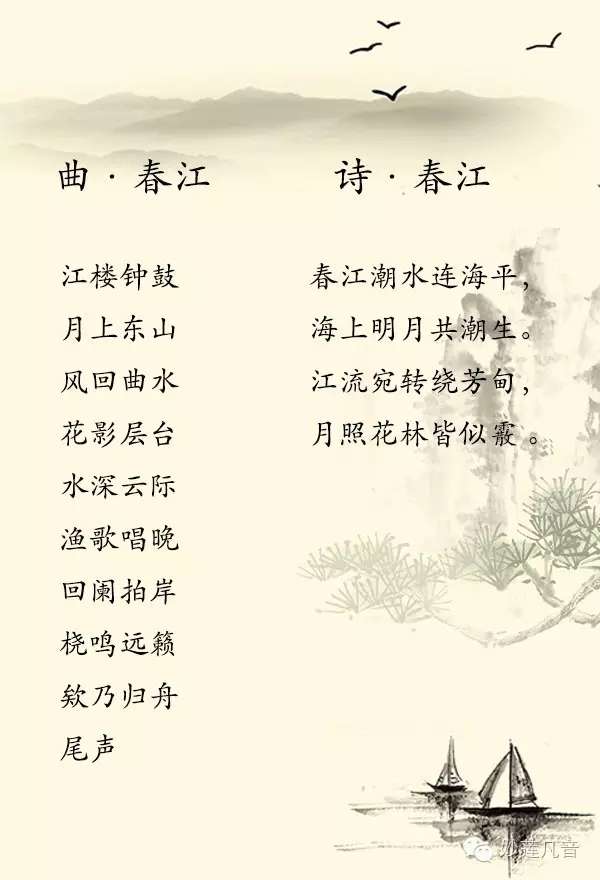 曲·春江
江楼钟鼓
月上东山
风回曲水
花影层台
水深云际
渔歌唱晚
回阑拍岸
桡鸣远籁
欸乃归舟
尾声
诗·春江
春江潮水连海平，
海上明月共潮生。
江流宛转绕芳甸，
月照花林皆似霰。
妙莲凡音